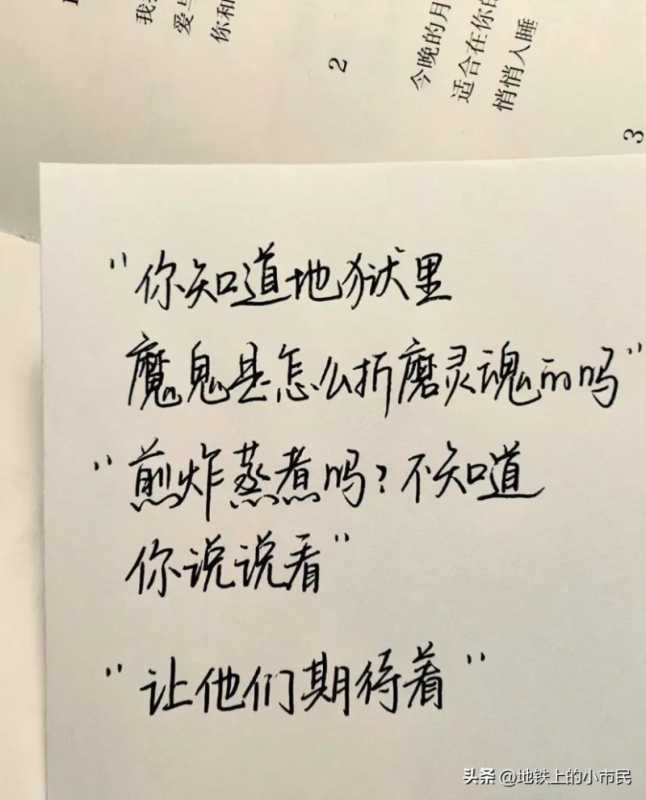 我
爱
你和
2
今晚的月
适合在你的
悄悄入睡
3
"你知道地狱里
魔鬼是怎么折磨灵魂的吗"
"煎炸蒸煮吗?不知道
你说说看"
"让他们期待着"
头条 @地铁上的小市民